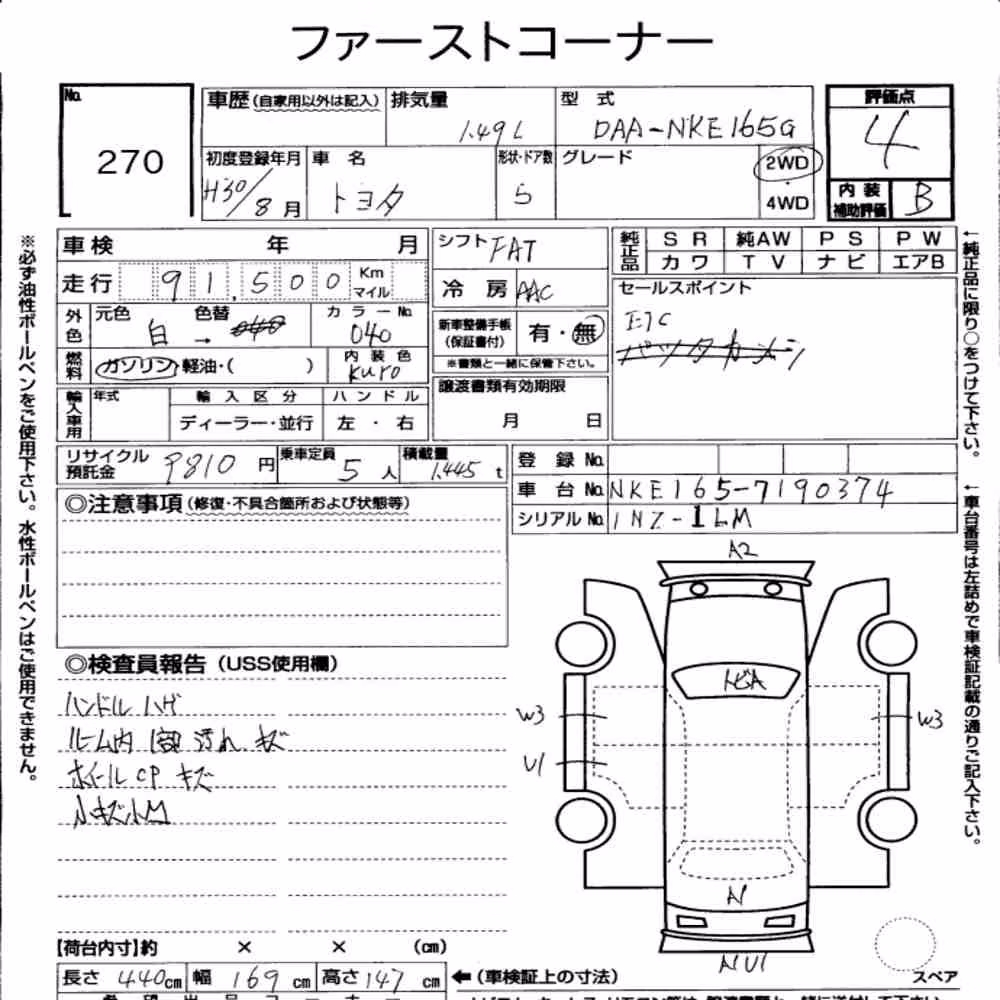 ファーストコーナー
No. 270
車歴(自家用以外は記入) 排気量 1.49L 型式 DAA-NKE165G 評価点 4
初度登録年月 H30/8月 車名 トヨタ 形状・ドア数 5 グレード 2WD・4WD 内装補助評価 B
車検 年 月
走行 91,500 Km マイル
外色 元色 白 色替 → カラーNo. 040
燃料 ガソリン・軽油・( ) 内装色 kuro
輸入車用 年式 輸入区分 ディーラー・並行 ハンドル 左・右
シフト FAT
冷房 AAC
新車整備手帳(保証書付) 有・無
※書類と一緒に保管下さい。
譲渡書類有効期限
月 日
純正品 SR 純AW PS PW
カワ TV ナビ エアB
セールスポイント
ETC
リサイクル預託金 9810円 乗車定員 5人 積載量 1.445t
登録No.
車台No. NKE165-7190374
シリアルNo. 1NZ-1LM
◎注意事項(修復・不具合箇所および状態等)
◎検査員報告(USS使用欄)
ハンドル ハゲ
ルーム内 汚れ キズ
ホイールCP キズ
A2
トビA
W3
W3
U1
A
AU1
スペア
【荷台内寸】約 × × (cm)
長さ 440cm 幅 169cm 高さ 147cm ←(車検証上の寸法)
※必ず油性ボールペンをご使用下さい。水性ボールペンはご使用できません。
←純正品に限り○をつけて下さい。
←車台番号は左詰めで車検証記載の通りご記入下さい。